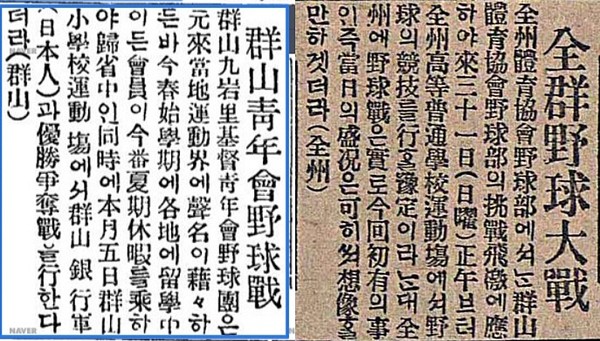 群山靑年會野球戰
群山九岩里基督靑年會野球團은
元來當地運動界에聲名이藉々하
든바今春始學期에各地에留學中
이든會員이今番夏期休暇를乘하
야歸省中인同時에本月五日群山
小學校運動場에셔群山銀行軍
(日本人)과優勝爭奪戰을行한다
더라(群山)
全群野球大戰
全州體育協會野球部에셔는群山
體育協會野球部의挑戰飛檄에應
하야來三十一日(日曜)正午브터
全州高等普通學校運動場에셔野
球의競技를行홀豫定이라는대全
州에野球戰은實로今回初有의事
인즉當日의盛況은可히써想像홀
만하겟더라(全州)
NAVER
NAVER
NAVER